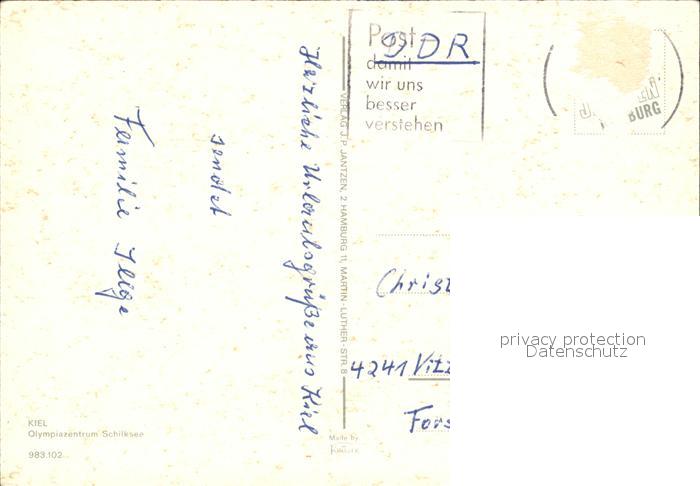 Herzliche Urlaubsgrüße aus Kiel
sendet
Familie
KIEL
Olympiazentrum Schilksee
983.102
VERLAG J. P. JANTZEN, 2 HAMBURG 11, MARTIN-LUTHER-STR. 8
Made by
Post
damit
wir uns
besser
verstehen
DDR
BURG
Christ
4241 Vitz
Fors
privacy protection
Datenschutz